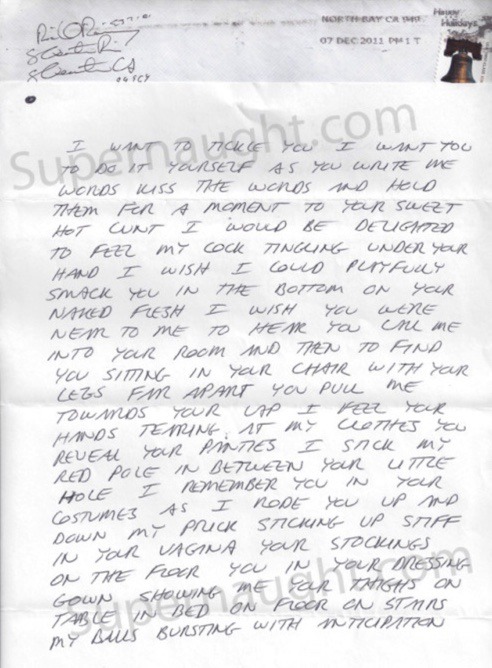 NORTH BAY CA 949
07 DEC 2011 PM 1 T
Happy
Holidays
I WANT TO TICKLE YOU I WANT YOU
TO DO IT YOURSELF AS YOU WRITE ME
WORDS KISS THE WORDS AND HOLD
THEM FOR A MOMENT TO YOUR SWEET
HOT CUNT I WOULD BE DELIGHTED
TO FEEL MY COCK TINGLING UNDER YOUR
HAND I WISH I COULD PLAYFULLY
SMACK YOU IN THE BOTTOM ON YOUR
NAKED FLESH I WISH YOU WERE
NEAR TO ME TO HEAR YOU CALL ME
INTO YOUR ROOM AND THEN TO FIND
YOU SITTING IN YOUR CHAIR WITH YOUR
LEGS FAR APART YOU PULL ME
TOWARDS YOUR LAP I FEEL YOUR
HANDS TEARING AT MY CLOTHES YOU
REVEAL YOUR PANTIES I STICK MY
RED POLE IN BETWEEN YOUR LITTLE
HOLE I REMEMBER YOU IN YOUR
COSTUMES AS I RODE YOU UP AND
DOWN MY PRICK STICKING UP STIFF
IN YOUR VAGINA YOUR STOCKINGS
ON THE FLOOR YOU IN YOUR DRESSING
GOWN SHOWING ME YOUR THIGHS ON
TABLE IN BED ON FLOOR ON STAIRS
MY BALLS BURSTING WITH ANTICIPATION
Supernaught.com
Supernaught.com